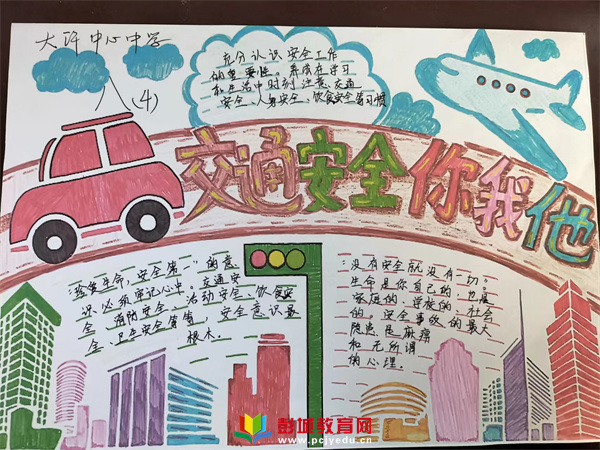 大许中心中学
八(4)
充分认识安全工作
的重要性。养成在学习
和生活中时刻注意交通
安全、人身安全、饮食安全等习惯
交通安全你我他
“珍爱生命，安全第一”的意
识必须牢记心中。交通安
全、消防安全、活动安全、饮食安
全、卫生安全等等，安全意识是
根本。
“没有安全就没有一切”
生命是你自己的，也是
家庭的、学校的、社会
的。安全事故的最大
隐患是麻痹
和无所谓
的心理。
彭城教育网
www.pcjyedu.cn